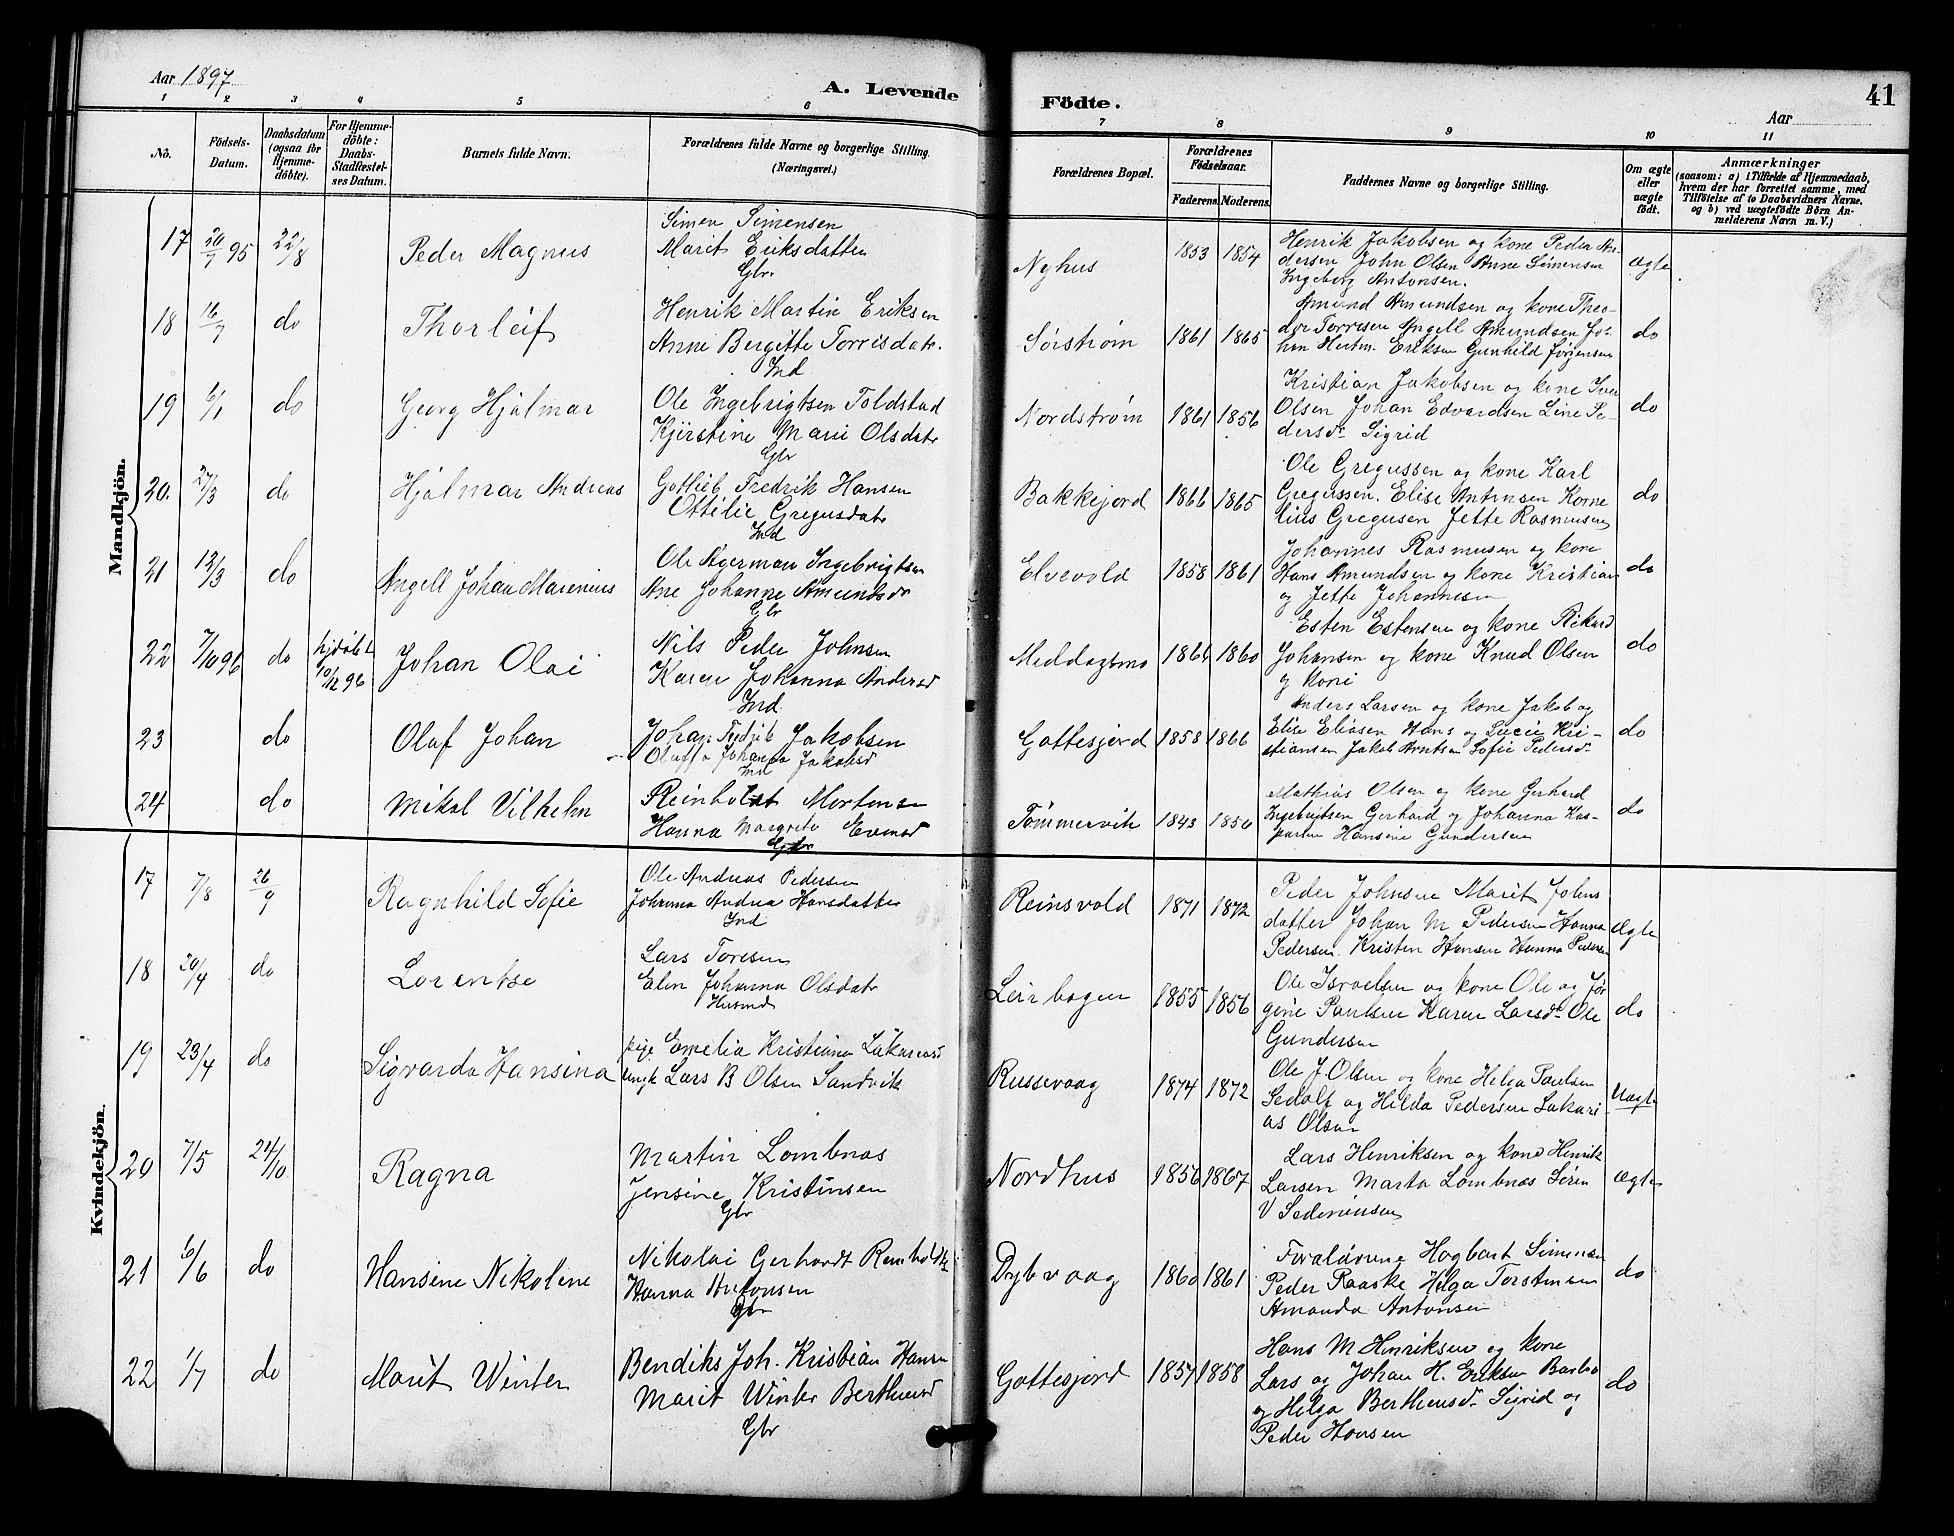 Aar 1897
A. Levende
Födte.
Aar
41
1 2 3 4 5 6 7 8 9 10 11
No.
Födsels-
Datum.
Daabsdatum
(ogsaa for
Hjemme-
döbte).
For Hjemme-
döbte:
Daabs-
Stadfæstel-
ses Datum.
Barnets fulde Navn.
Forældrenes fulde Navne og borgerlige Stilling.
(Næringsvei.)
Forældrenes Bopæl.
Forældrenes
Födselsaar.
Faderens. Moderens.
Faddernes Navne og borgerlige Stilling.
Om ægte
eller
uægte
födt.
Anmærkninger
(saasom: a) i Tilfælde af Hjemmedaab,
hvem der har forrettet samme, med
Tilföielse af to Daabsvidners Navne.
og b) ved uægtefödte Börn An-
melderens Navn m. V.)
Mandkjön.
17 20/7 95 22/8 Peder Magnus
Simen Simensen
Marit Eriksdatter
Gbr.
Nyhus 1853 1854
Henrik Jakobsen og kone Peder An-
dersen John Olsen Anne Simensen
Ingeborg Antonsen.
Ægte
18 16/7 do Thorleif
Henrik Martin Eriksen
Anne Bergitte Torrisdatr.
Ind
Sörström 1861 1865
Amund Amundsen og kone Theo-
dor Torresen Angell Amundsen Jo-
han Hertm. Eriksen Gunhild Jörgensen
do
19 6/1 do Georg Hjalmar
Ole Ingebrigtsen Toldstad
Kjirstine Marie Olsdatr
Gbr
Nordström 1861 1856
Kristian Jakobsen og kone Iver
Olsen Johan Edvardsen Line Pe-
dersdr Sigrid
do
20. 27/3 do Hjalmar Andreas
Gottlieb Fredrik Hansen
Ottilie Gregusdatr
Ind
Bakkejord 1866 1865
Ole Gregussen og kone Karl
Gregussen. Elise Antonsen Korne
lius Gregusen Jette Rasmusen
do
21 12/3 do Angell Johan Marenius
Ole Agerman Ingebrigtsen
Ane Johanne Amundsdr
Gbr
Elvevold 1858 1861
Johannes Rasmusen og kone
Hans Amundsen og kone Kristian
og Jette Johannesen
do
22 7/10 96 do hjdöbt 10/12 96 Johan Olai
Nils Peder Johnsen
Karen Johanna Andersd
Ind
Middagsmo 1864 1860
Esten Estensen og kone Rikard
Johansen og kone Knud Olsen
og kone
do
23 do Olaf Johan
Johan Fredrik Jakobsen
Oluffa Johanna Jakobsd
Ind
Gottesjord 1858 1866
Anders Larsen og kone Jakob og
Elise Eliasen Hans og Lucie Kri-
stiansen Jakob Arntsen Sofie Pedersdr
do
24 do Mikal Vilhelm
Reinholdt Mortensen
Hanna Margrete Evensd
Gbr
Tömmervik 1843 1850
Mathias Olsen og kone Gerhard
Ingebrigtsen Gerhard og Johanna Kas-
parsen Hansine Gundersen
do
Kvindekjön.
17 7/8 26/9 Ragnhild Sofie
Ole Andreas Pedersen
Johanna Andrea Hansdatter
Ind
Reinsvold 1871 1872
Peder Johnsen Marit Johns
datter Johan M Pedersen Hanna
Pedersen Kristen Hansen Hanna Pedersen
Ægte
18 20/4 do Lorentse
Lars Toresen
Elen Johanna Olsdatr
Husmd
Leirbogen 1855 1856
Ole Israelsen og kone Ole og Jör
gine Paulsen Karen Larsdr Ole
Gundersen
do
19 23/4 do Sigvarda Hansina
pige Emelia Kristiane Zakariasd
ungk Lars B Olsen Sandvik
Russevaag 1874 1872
Ole J. Olsen og kone Helga Paulsen
Sedolf og Hilda Pedersen Zakari-
as Olsen
Uægte
20 7/5 24/10 Ragna
Martin Lombnæs
Jensine Kristinsen
Gbr
Nordhus 1856 1867
Lars Henriksen og kone Henrik
Larsen Marta Lombnæs Sören
V Sedeniusen
Ægte
21 6/6 do Hansine Nikoline
Nikolai Gerhardt Reinholdts
Hanna Antonsen
Gbr
Dybvaag 1860 1861
Forældrene Hagbart Simensen
Peder Raaske Helga Torstensen
Amanda Antonsen
do
22 1/7 do Marit Winter
Bendiks Joh. Kristian Hansen
Marit Winter Berthensd
Gbr
Gottesjord 1857 1858
Hans M Henriksen og kone
Lars og Johan H. Eriksen Barbo
og Helga Berthensdr Sigrid og
Peder Hansen
do